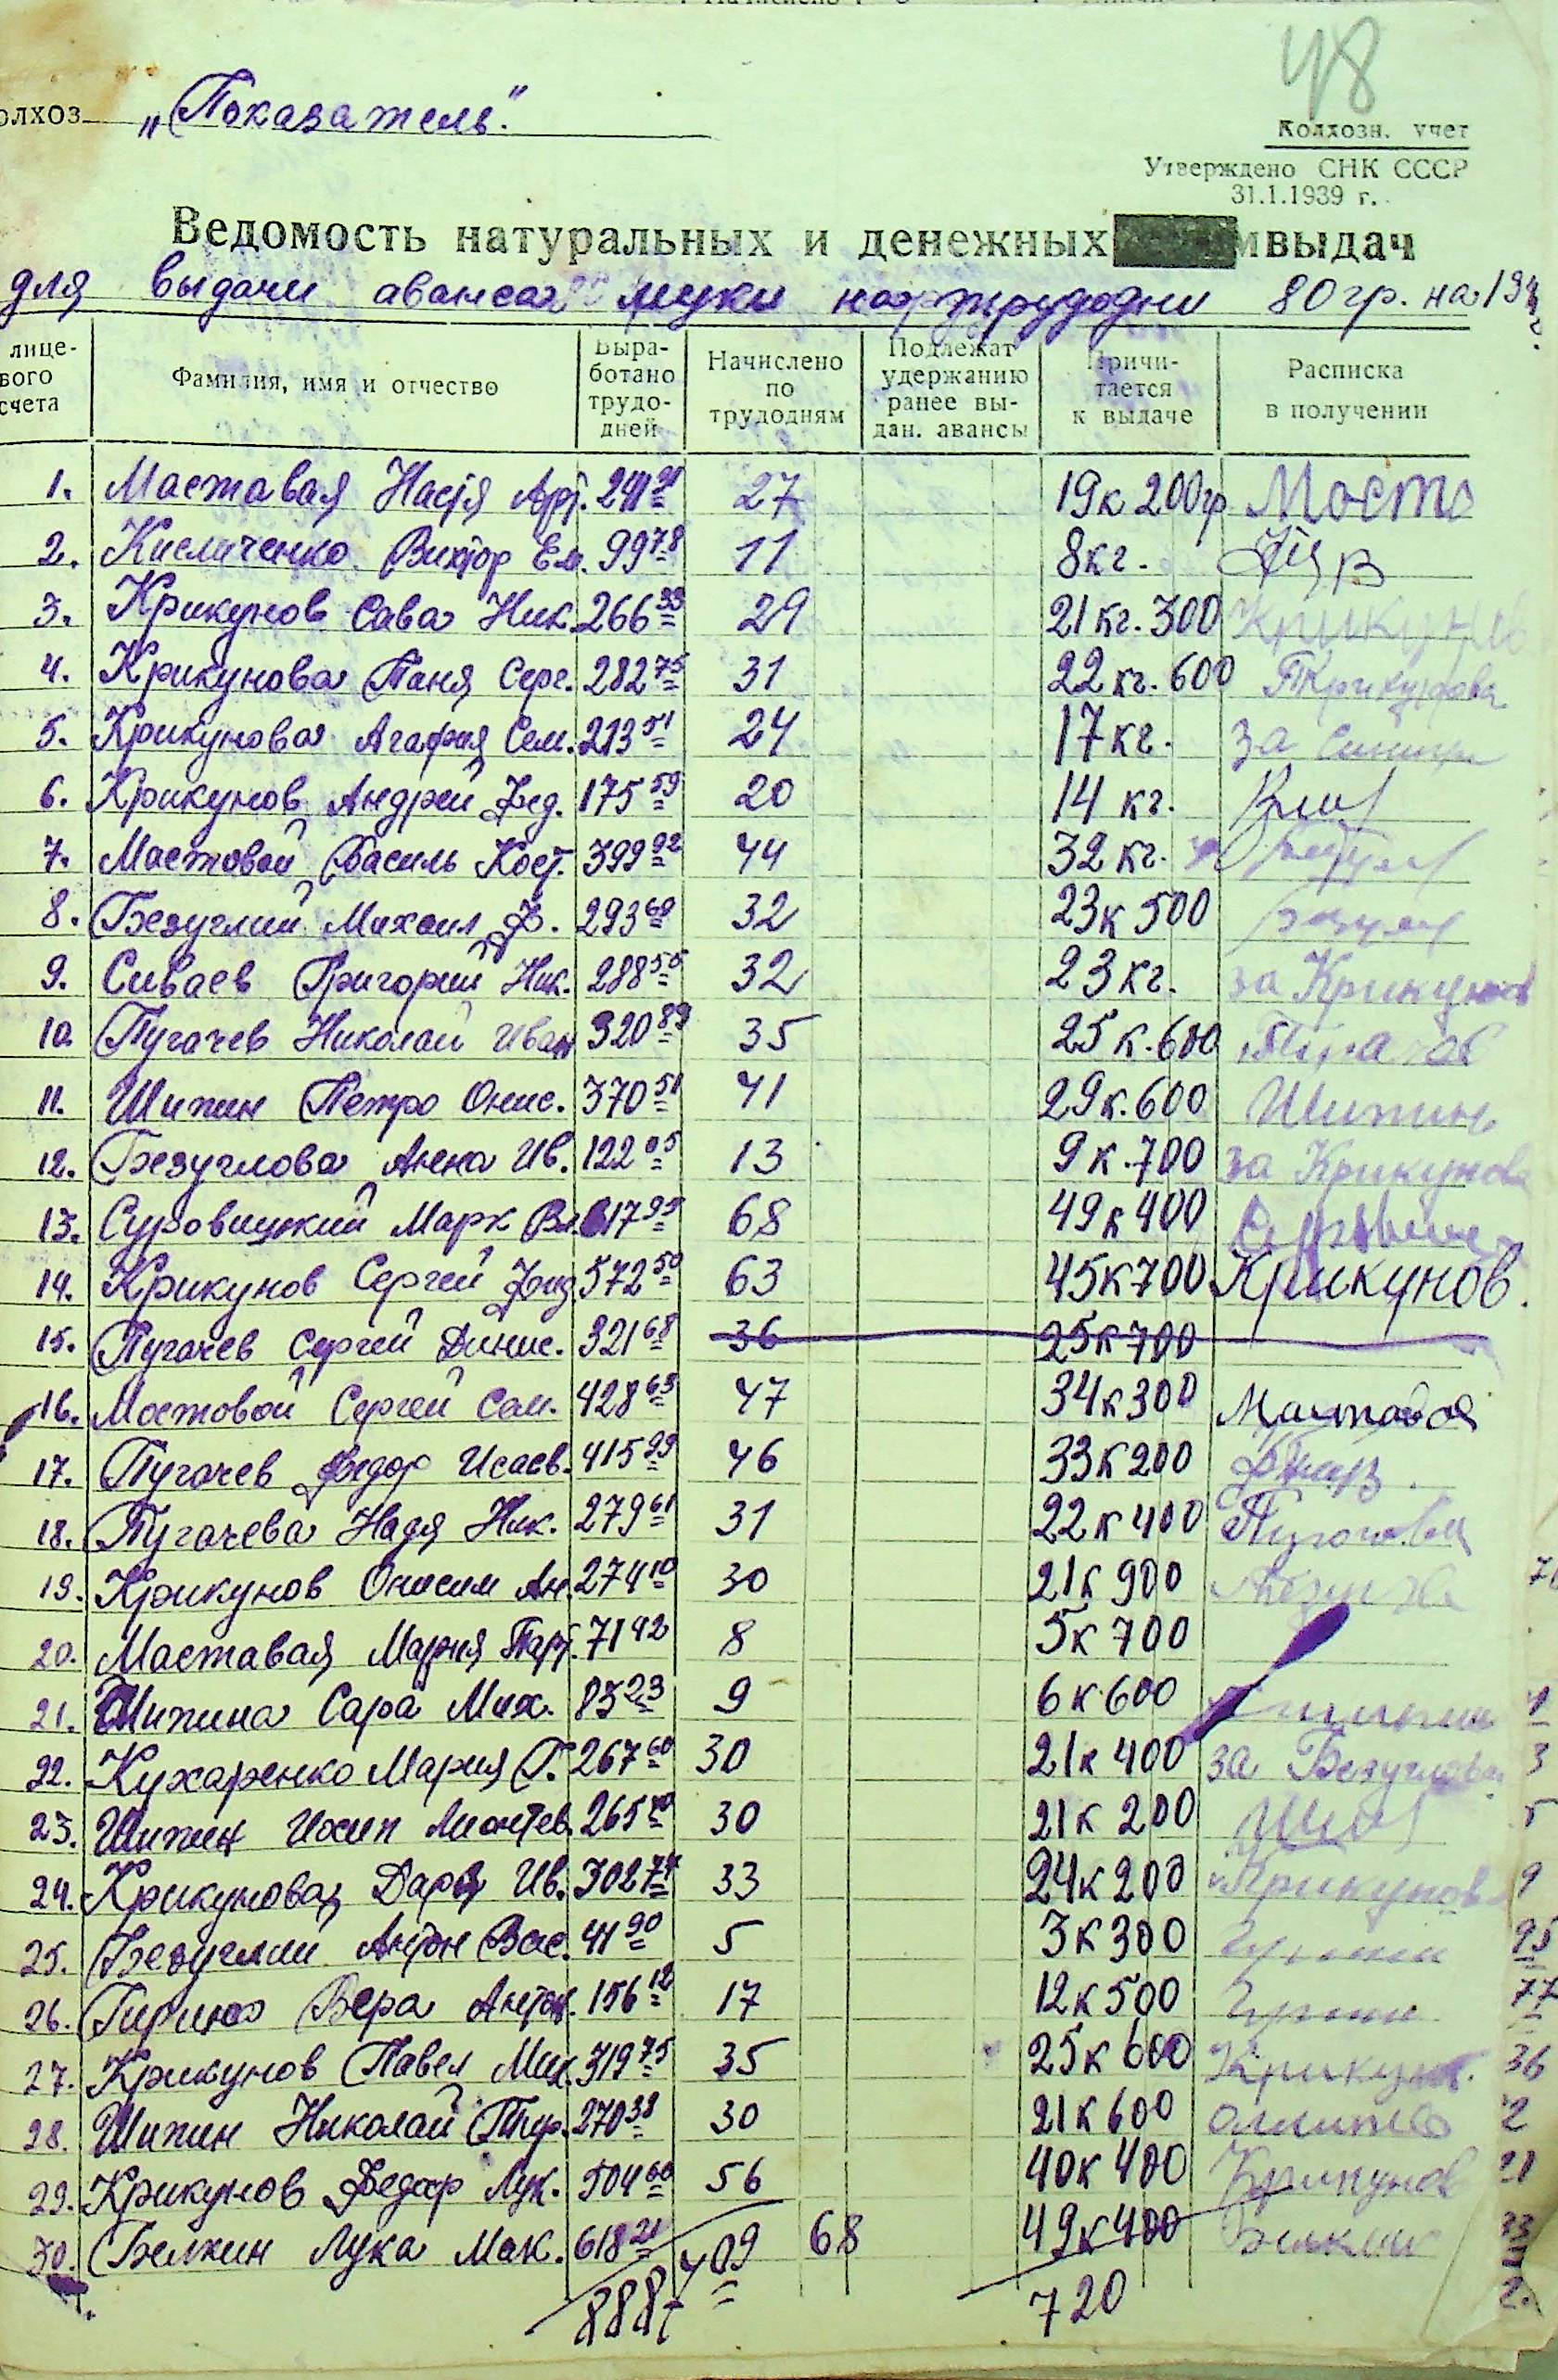 48
олхоз „Показатель."
Колхозн. учет
Утверждено СНК СССР
31.1.1939 г.
Ведомость натуральных и денежных выдач
для выдачи аванса муки на трудодни 80 гр. на 194
лицевого счета | Фамилия, имя и отчество | Выработано трудодней | Начислено по трудодням | Подлежат удержанию ранее выдан. авансы | Причитается к выдаче | Расписка в получении
1. Мастовая Настя Арт. 241 27 19к 200гр Мосто
2. Кисличенко Виктор Ем. 99 78 11 8кг.
3. Крикунов Сава Ник. 266 33 29 21 кг. 300 Крикунов
4. Крикунова Паня Серг. 282 75 31 22 кг. 600 ПКрикунова
5. Крикунова Агафия Сем. 213 51 24 17 кг. за
6. Крикунов Андрей Фед. 175 59 20 14 кг.
7. Мастовой Василь Кост. 399 92 44 32 кг.
8. Безуглий Михаил Ф. 293 69 32 23к 500
9. Сиваев Григорий Ник. 288 55 32 23 кг. за Крикунов
10. Пугачев Николай Иван 320 89 35 25 к. 600
11. Шипин Петро Онис. 370 51 41 29к. 600 Шипин
12. Безуглова Анна Ив. 122 05 13 9 к. 700 за Крикунова
13. Суровицкий Марк Вл. 617 95 68 49к 400
14. Крикунов Сергей Фид. 572 50 63 45к 700 Крикунов.
15. Пугачев Сергей Динис. 321 68 36 25к 700
16. Мостовой Сергей Сем. 428 63 47 34к 300 Мастовой
17. Пугачев Федор Исаев. 415 29 46 33к 200
18. Пугачева Надя Ник. 279 61 31 22к 400 Пугачова
19. Крикунов Онисим Ан. 274 10 30 21к 900
20. Маставая Мария Парт. 71 42 8 5к 700
21. Шипина Сара Мих. 83 23 9 6к 600
22. Кухаренко Мария Г. 267 60 30 21к 400 за Безуглова 3
23. Шипин Иосип Леонтев. 265 30 21к 200 5
24. Крикунова Даря Ив. 302 74 33 24к 200 Крикунов 9
25. Безуглий Антон Вас. 41 90 5 3к 300 95
26. Гирина Вера Антон. 156 12 17 12к 500 77
27. Крикунов Павел Мих. 319 75 35 25к 600 Крикун. 36
28. Шипин Николай 270 38 30 21к 600 2
29. Крикунов Федор Лук. 504 60 56 40к 400 Крикунов 21
30. Белкин Лука Мак. 618 21 68 49к 400 Белкин
8887 909 720